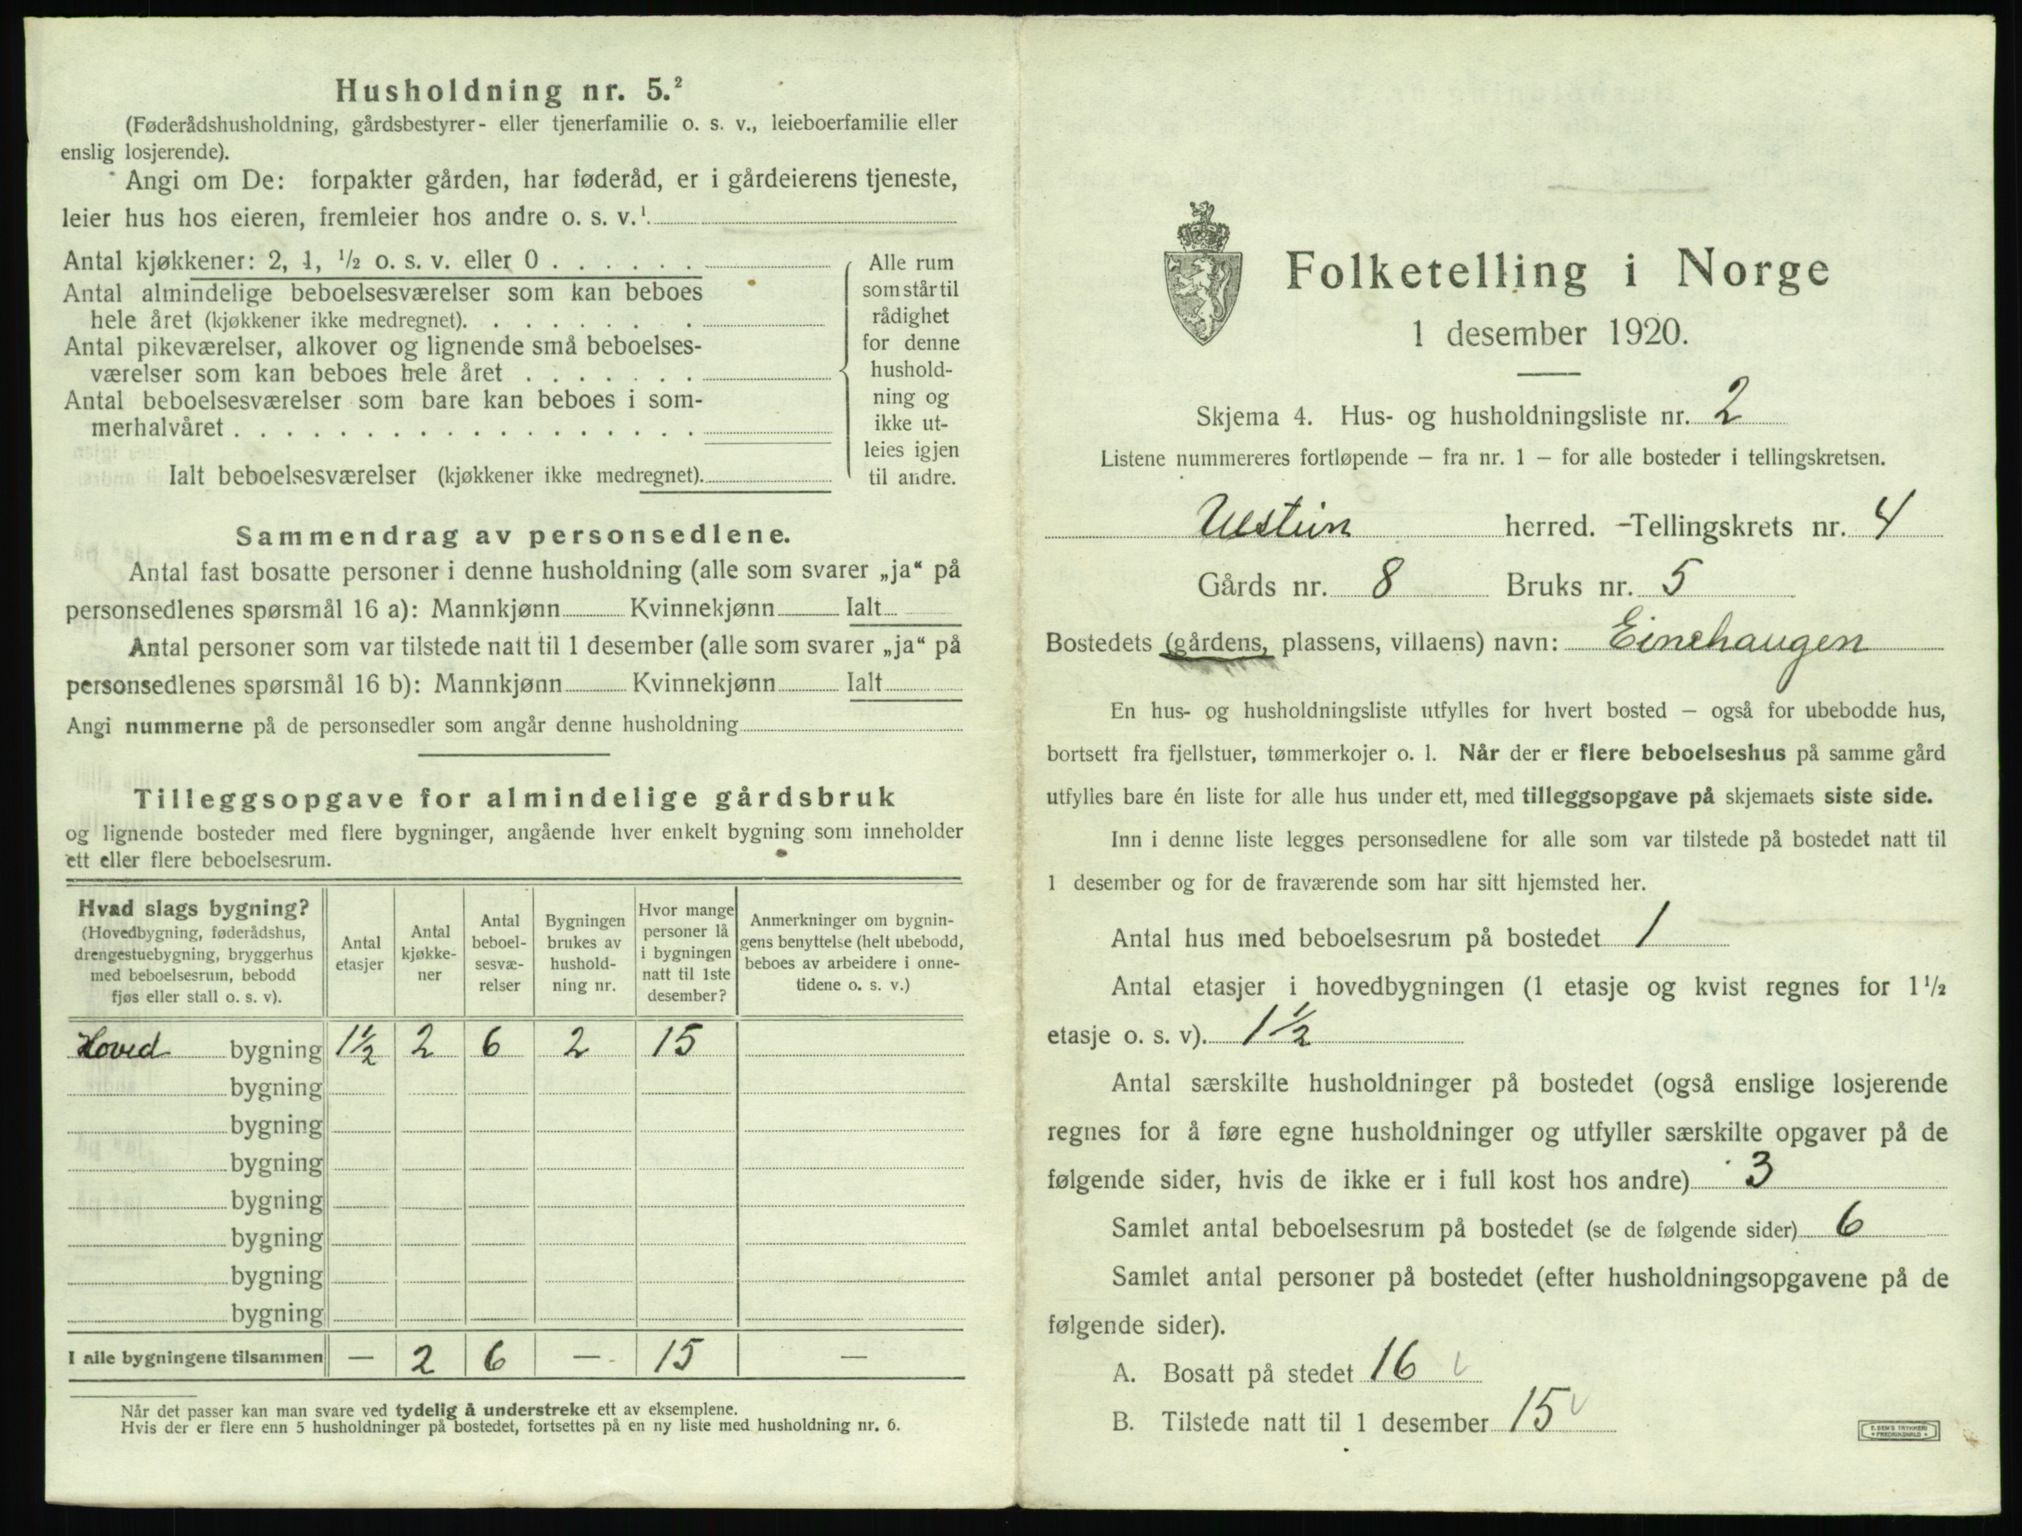 Husholdning nr. 5.²
(Føderådshusholdning, gårdsbestyrer- eller tjenerfamilie o. s. v., leieboerfamilie eller
enslig losjerende).
Angi om De: forpakter gården, har føderåd, er i gårdeierens tjeneste,
leier hus hos eieren, fremleier hos andre o. s. v.¹
Antal kjøkkener: 2, 1, ¹/₂ o. s. v. eller 0 . . . . . .
Antal almindelige beboelsesværelser som kan beboes
hele året (kjøkkener ikke medregnet). . . . . . . . .
Antal pikeværelser, alkover og lignende små beboelses-
værelser som kan beboes hele året . . . . . . .
Antal beboelsesværelser som bare kan beboes i som-
merhalvåret . . . . . . . . . . . . . . . . . .
Ialt beboelsesværelser (kjøkkener ikke medregnet).
Alle rum
som står til
rådighet
for denne
hushold-
ning og
ikke ut-
leies igjen
til andre.
Sammendrag av personsedlene.
Antal fast bosatte personer i denne husholdning (alle som svarer „ja“ på
personsedlenes spørsmål 16 a): Mannkjønn Kvinnekjønn Ialt
Antal personer som var tilstede natt til 1 desember (alle som svarer „ja“ på
personsedlenes spørsmål 16 b): Mannkjønn Kvinnekjønn Ialt
Angi nummerne på de personsedler som angår denne husholdning
Tilleggsopgave for almindelige gårdsbruk
og lignende bosteder med flere bygninger, angående hver enkelt bygning som inneholder
ett eller flere beboelsesrum.
Hvad slags bygning?
(Hovedbygning, føderådshus,
drengestuebygning, bryggerhus
med beboelsesrum, bebodd
fjøs eller stall o. s. v).
Antal
etasjer
Antal
kjøkke-
ner
Antal
beboel-
sesvæ-
relser
Bygningen
brukes av
hushold-
ning nr.
Hvor mange
personer lå
i bygningen
natt til 1ste
desember?
Anmerkninger om bygnin-
gens benyttelse (helt ubebodd,
beboes av arbeidere i onne-
tidene o. s. v.)
Hoved bygning 1½ 2 6 2 15
bygning
bygning
bygning
bygning
bygning
bygning
bygning
I alle bygningene tilsammen — 2 6 — 15 —
Når det passer kan man svare ved tydelig å understreke ett av eksemplene.
Hvis der er flere enn 5 husholdninger på bostedet, fortsettes på en ny liste med husholdning nr. 6.
Folketelling i Norge
1 desember 1920.
Skjema 4. Hus- og husholdningsliste nr. 2
Listene nummereres fortløpende — fra nr. 1 — for alle bosteder i tellingskretsen.
Ulstein herred. - Tellingskrets nr. 4
Gårds nr. 8 Bruks nr. 5
Bostedets (gårdens, plassens, villaens) navn: Einehaugen
En hus- og husholdningsliste utfylles for hvert bosted — også for ubebodde hus,
bortsett fra fjellstuer, tømmerkojer o. l. Når der er flere beboelseshus på samme gård
utfylles bare én liste for alle hus under ett, med tilleggsopgave på skjemaets siste side.
Inn i denne liste legges personsedlene for alle som var tilstede på bostedet natt til
1 desember og for de fraværende som har sitt hjemsted her.
Antal hus med beboelsesrum på bostedet 1
Antal etasjer i hovedbygningen (1 etasje og kvist regnes for 1¹/₂
etasje o. s. v). 1½
Antal særskilte husholdninger på bostedet (også enslige losjerende
regnes for å føre egne husholdninger og utfyller særskilte opgaver på de
følgende sider, hvis de ikke er i full kost hos andre) 3
Samlet antal beboelsesrum på bostedet (se de følgende sider) 6
Samlet antal personer på bostedet (efter husholdningsopgavene på de
følgende sider).
A. Bosatt på stedet 16
B. Tilstede natt til 1 desember 15